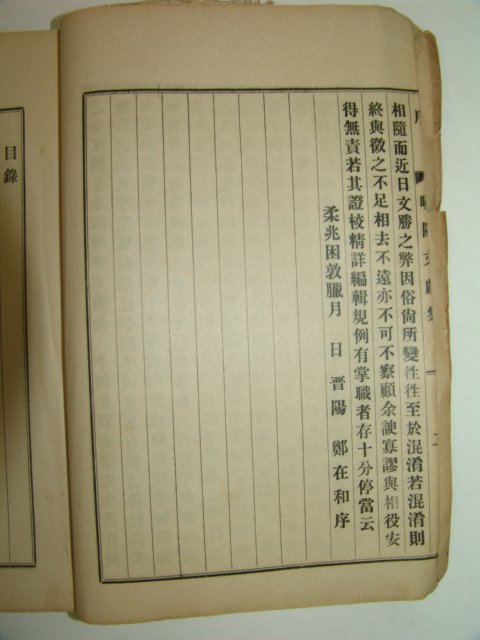 相隨而近日文勝之弊因俗尙所變徃徃至於混淆若混淆則
終與徵之不足相去不遠亦不可不察顧余謏寡謬與相役安
得無責若其證校精詳編輯規例有掌職者存十分停當云
柔兆困敦臘月 日 晋陽 鄭在和序
目錄